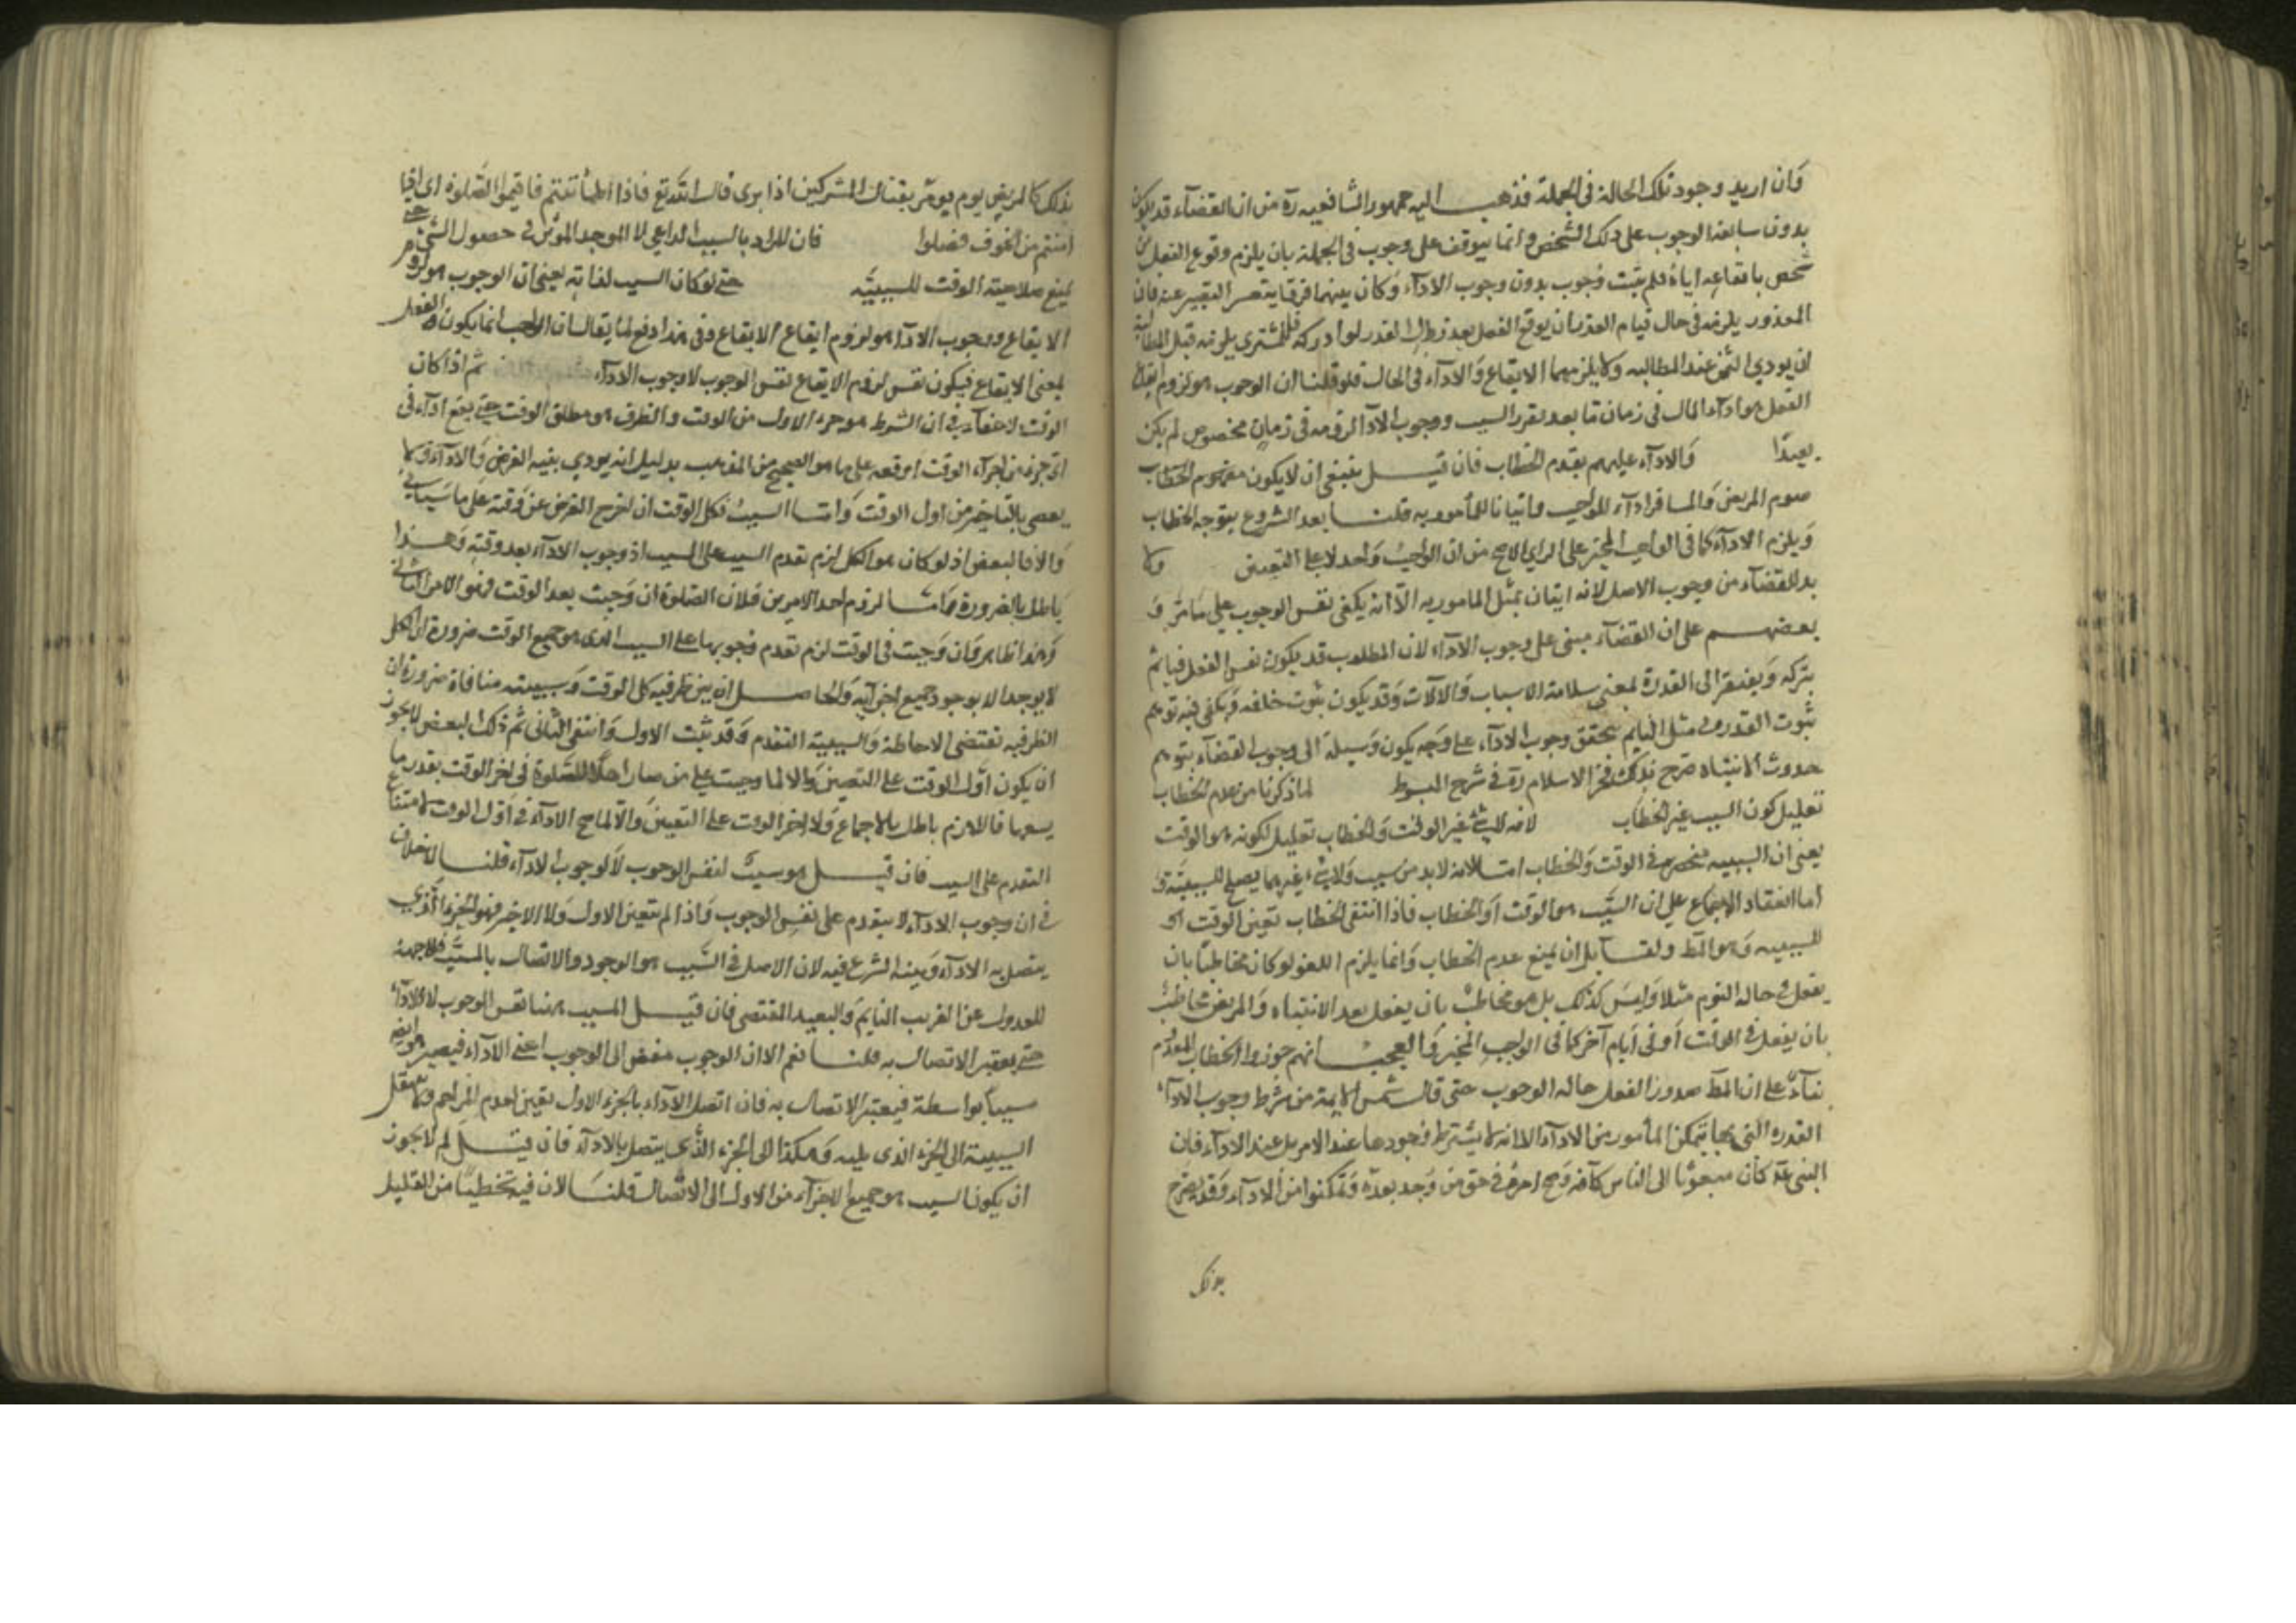 فان اريد وجود تلك الحالة في الجملة فذهب اليه جمهور الشافعيه ره من ان القضآء قد يكون
بدون سابقة الوجوب على ذلك الشخص وانما يتوقف على وجوب في الجملة بان يلزم وقوع الفعل من
شخص بايقاعه اياه فلم يثبت وجوب بدون وجوب الادآء وكان بينهما فرقا يتعسر التعبير عنه فان
المعذور يلزمه في حال قيام العذر ان يوقع الفعل بعد زوال العذر لو ادركه فالمشتري يلزمه قبل المطالبة
ان يودي الثمن عند المطالبه ولا يلزمهما الايقاع والادآء في الحال فلو قلنا ان الوجوب هو لزوم ايقاع
الفعل او ادآء المال في زمان ما بعد تقرر السبب ووجوب الادآء لزومه في زمان مخصوص لم يكن
بعيدًا والادآء عليهم بعدم الخطاب فان قيل ينبغي ان لا يكون
صوم المريض والمسافر ادآء للواجب واتيانا للمأمور به قلنا بعد الشروع يتوجه الخطاب
ويلزم الادآء كما في الواجب المخير على الراي الاصح من ان الواجب واحد لا على التعيين ولا
بد للقضآء من وجوب الاصل لانه اتيان بمثل المامور به الا انه يكفي نفس الوجوب علي ما مر و
بعضهم على ان القضآء مبني على وجوب الادآء لان المطلوب قد يكون نفس الفعل فيأثم
بتركه ويفتقر الى القدرة بمعني سلامة الاسباب والآلات وقد يكون ثبوت خلفه ويكفي فيه توهم
ثبوت القدره في مثل النايم يتحقق وجوب الادآء على وجه يكون وسيلة الى وجوب القضآء بتوهم
حدوث الانتباه صرح بذلك فخر الاسلام ره في شرح المبسوط لما ذكرنا من عدم الخطاب
تعليل كون السبب غير الخطاب لانه لا شئ غير الوقت والخطاب تعليل لكونه هو الوقت
يعني ان السببيه منحصرة في الوقت والخطاب اما لانه لا بد من سبب ولا شئ غيرهما يصلح للسببية و
اما انعقاد الاجماع علي ان السبب هو الوقت او الخطاب فاذا انتفي الخطاب تعين الوقت
للسببيه وهو المط ولقائل ان يمنع عدم الخطاب وانما يلزم اللغو لو كان مخاطبًا بان
يفعل في حالة النوم مثلا وليس كذلك بل هو مخاطب بان يفعل بعد الانتباه والمريض مخاطب
بان يفعل في الوقت او في ايام آخر كما في الواجب المخير والعجب انهم جوزوا الخطاب المعدوم
بنآء على ان المط صدور الفعل حالة الوجوب حتى قال شمس الايمة من شرط وجوب الادآء
القدره التي بها يتمكن المأمور من الادآء الا انه لا يشترط وجودها عند الامر بل عند الادآء فان
النبي كان مبعوثا الى الناس كآفة وصح امره في حق من وجد بعده وتمكنوا من الادآء وقد يصرح
بذلك
بذلك كالمريض يوم يومر بقتال المشركين اذا برئ قال الله تع فاذا اطمأننتم فاقيموا الصلوة اي اذا
امنتم من الخوف فصلوا فان المراد بالسبب الداعي لا الموجد الموثر في حصول الشئ حتى
يمنع صلاحية الوقت للسببية حتى لو كان السبب لذاته يعني ان الوجوب هو لزوم
الايقاع ووجوب الادآء هو لزوم ايقاع الايقاع وفي هذا دفع لما يقال ان الواجب انما يكون الفعل
بمعني الايقاع فيكون نفس لزوم الايقاع نفس الوجوب لا وجوب الادآء ثم اذا كان
الوقت لا خفآء في ان الشرط هو جزء الاول من الوقت والظرف هو مطلق الوقت حتى يقع ادآء في
اي جزء من اجزآء الوقت اوقعه على ما هو الصحيح من المذهب بدليل انه يودي بنيه الفرض والادآء ولا
يعصى بالتاخير من اول الوقت واما السبب فكل الوقت ان اخرج الفرض عن وقته على ما سياتي
والا فالبعض اذ لو كان هو الكل لزم تقدم المسبب على السبب او وجوب الادآء بعد وقته وهذا
باطل بالضرورة لزوم احد الامرين فلان الصلوة ان وجبت بعد الوقت فهو الامر الثاني
وهذا ظاهر وان وجبت في الوقت لزم تقدم وجوبها على السبب الذي هو جميع الوقت ضرورة ان الكل
لا يوجد الا بوجود جميع اجزآيه والحاصل ان بين ظرفيه كل الوقت وسببيته منافاة ضرورة ان
الظرفيه تقتضي الاحاطة والسببية التقدم وقد ثبت الاول وانتفى الثاني ثم ذلك البعض لا يجوز
ان يكون اول الوقت على التعيين والا لما وجبت علي من صار اهلا للصلوة في اخر الوقت بقدر ما
يسعها فاللازم باطل بالاجماع ولا اخر الوقت على التعيين والا لما صح الادآء في اول الوقت لامتناع
التقدم على السبب فان قيل هو سبب لنفس الوجوب لا لوجوب الادآء قلنا لا خلاف
في ان وجوب الادآء لا يتقدم على نفس الوجوب واذا لم يتعين الاول ولا الاخير فهو الجزء الذي
يتصل به الادآء ويبنه الشرع فيه لان الاصل في السبب هو الوجود والاتصال بالمسبب فلا جهة
للعدول عن القريب القايم والبعيد المنقضي فان قيل المسبب هنا نفس الوجوب لا الادآء
حتى يعتبر الاتصال به قلنا نعم الا ان الوجوب مفض الى الوجوب اعني الادآء فيصير هو ايضا
سببا بواسطة فيعتبر الاتصال به فان اتصل الادآء بالجزء الاول تعين لعدم المزاحم والا ينتقل
السببية الى الجزء الذي يليه وهكذا الى الجزء الذي يتصل بالادآء فان قيل لم لا يجوز
ان يكون السبب هو جميع الاجزآء من الاول الى الاتصال قلنا لان فيه تخطيًا من القليل